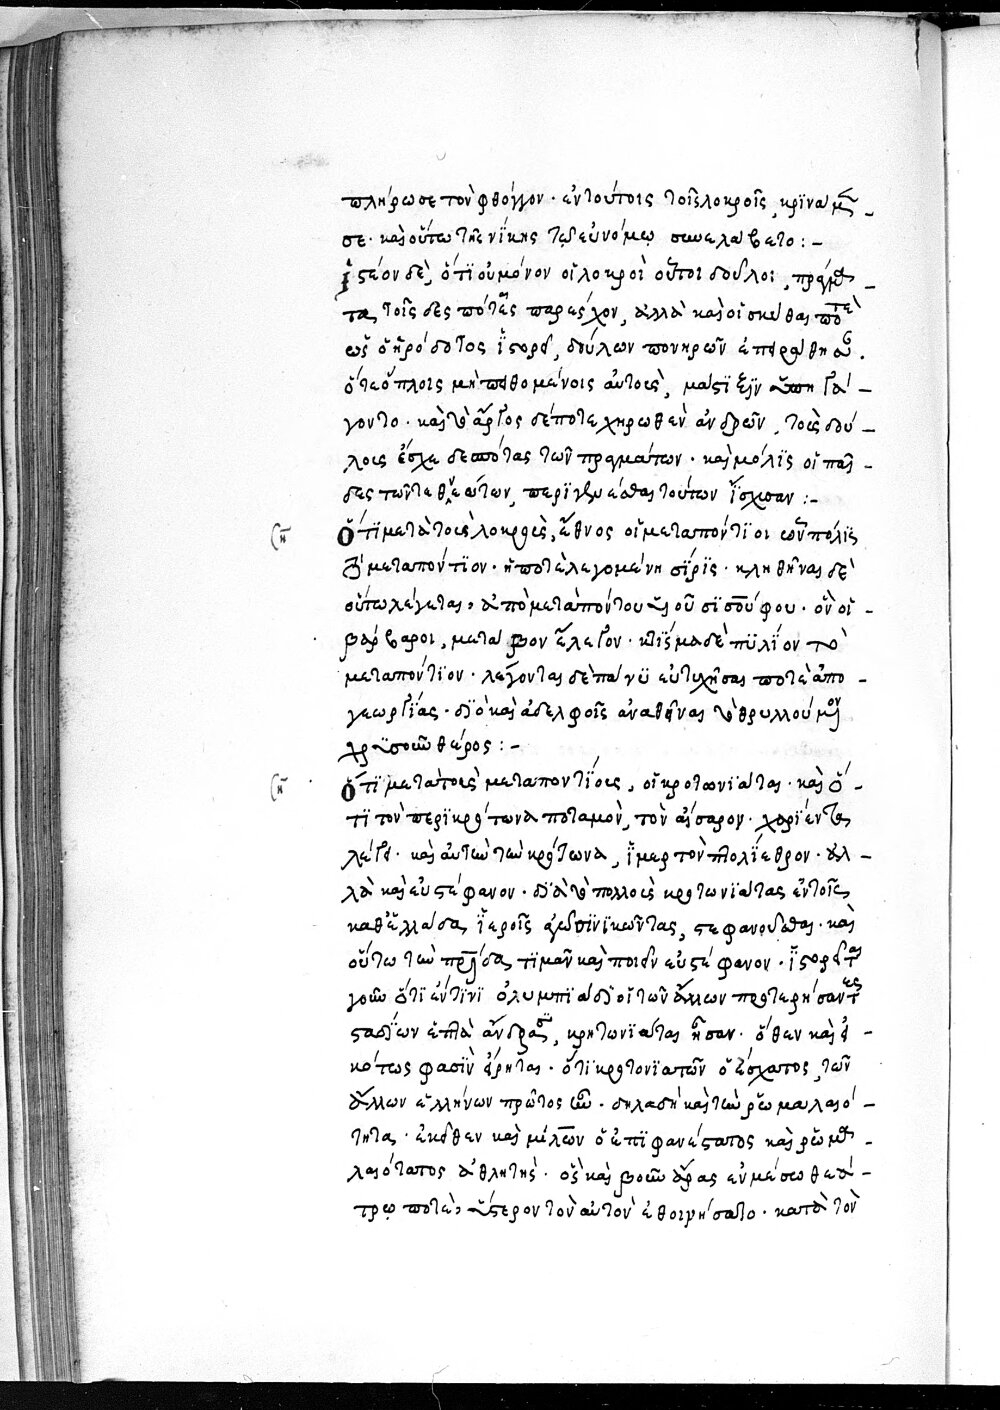 πλήρωσε τὸν φθόγγον· ἐν τούτοις τοῖς λοκροῖς, κρίναμεν
σε· καὶ οὕτω τῆς νίκης τῷ εὐνόμῳ συνελάβετο:-
ἰστέον δὲ, ὅτι οὐ μόνον οἱ λοκροὶ οὗτοι δοῦλοι, πράγμα-
τα τοῖς δεσπόταις παρέσχον, ἀλλὰ καὶ οἱ σκύθαι ποτὲ
ὡς ὁ ἡρόδοτος ἱστορεῖ, δούλων πονηρῶν ἐπειράθησαν.
ὅτε ὅπλοις μὴ πειθομένοις αὐτοὺς, μάστιξιν ὑπηγά-
γοντο· καὶ τὸ ἄργος δέ ποτε χηρωθὲν ἀνδρῶν, τοὺς δού-
λους ἔσχε δεσπότας τῶν πραγμάτων· καὶ μόλις οἱ παῖ-
δες τῶν τεθνεώτων, περιγενέσθαι τούτων ἴσχυσαν:-
ὅτι μετὰ τοὺς λοκροὺς, ἔθνος οἱ μεταπόντιοι ὧν πόλις
μεταπόντιον· ἥ ποτε λεγομένη σίρις· κληθῆναι δὲ
οὕτω λέγεται, ἀπὸ μεταπόντου υἱοῦ σισύφου· ὃν οἱ
βάρβαροι, μέταβον ἔλεγον· κτίσμα δὲ πύλιον τὸ
μεταπόντιον· λέγονται δὲ πάνυ εὐτυχῆσαί ποτε ἀπὸ
γεωργίας· διὸ καὶ ἀδελφοῖς ἀναθεῖναι τὸ θρυλλούμενον
χρυσοῦν θέρος:-
ὅτι μετὰ τοὺς μεταποντίους, οἱ κροτωνιᾶται· καὶ ὅ-
τι τὸν περὶ κρότωνα ποταμὸν, τὸν αἴσαρον· χαρίεντα
λέγει· καὶ αὐτὴν τὴν κρότωνα, ἱμερτὸν πτολίεθρον· ἀλ-
λὰ καὶ εὐστέφανον· διὰ τὸ πολλοὺς κροτωνιάτας ἐν τοῖς
καθ' ἑλλάδα ἱεροῖς ἀγῶσι νικῶντας, στεφανοῦσθαι· καὶ
οὕτω τὴν πατρίδα τιμᾶν καὶ ποιεῖν εὐστέφανον· ἱστορεῖται
γοῦν ὅτι ἔν τινι ὀλυμπιάδι οἱ τῶν ἄλλων προτερήσαντες
σταδίων ἑπτὰ ἄνδρασιν, κροτωνιᾶται ἦσαν· ὅθεν καὶ εἰ-
κότως φασὶν εἰρῆσθαι· ὅτι κροτονιατῶν ὁ ἔσχατος, τῶν
ἄλλων ἑλλήνων πρῶτος ἦν· δηλαδὴ κατὰ τὴν ῥωμαλαιό-
τητα· ἐκεῖθεν καὶ μίλων ὁ ἐπιφανέστατος καὶ ῥωμα-
λαιότατος ἀθλητὴς· ὃς καὶ βοῦν ἄρας ἐν μέσῳ θεά-
τρῳ ποτὲ, ὕστερον τὸν αὐτὸν ἐθοινήσατο· κατὰ τὸν